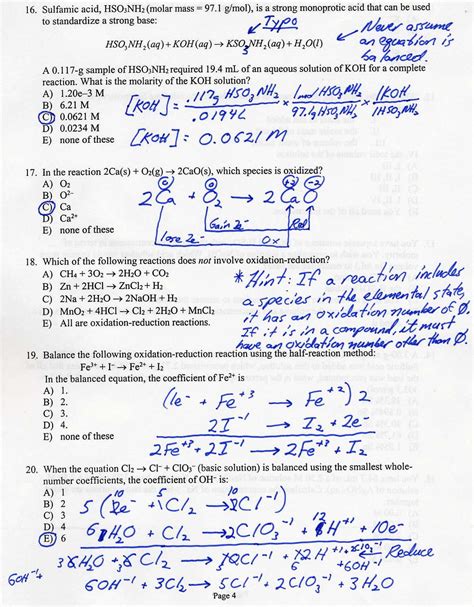 16. Sulfamic acid, HSO₃NH₂ (molar mass = 97.1 g/mol), is a strong monoprotic acid that can be used
to standardize a strong base:
Typo
Never assume
an equation is
balanced.
HSO₃NH₂(aq) + KOH(aq) → KSO₃NH₂(aq) + H₂O(l)
A 0.117-g sample of HSO₃NH₂ required 19.4 mL of an aqueous solution of KOH for a complete
reaction. What is the molarity of the KOH solution?
A) 1.20e–3 M
B) 6.21 M
C) 0.0621 M
D) 0.0234 M
E) none of these
[KOH] = .117g HSO₃NH₂ / .0194L × 1mol HSO₃NH₂ / 97.1g HSO₃NH₂ × 1KOH / 1HSO₃NH₂
[KOH] = 0.0621 M
17. In the reaction 2Ca(s) + O₂(g) → 2CaO(s), which species is oxidized?
A) O₂
B) O²⁻
C) Ca
D) Ca²⁺
E) none of these
0 0 +2 -2
2Ca + O₂ → 2CaO
Gain 2e⁻ Red
lose 2e⁻ Ox
18. Which of the following reactions does not involve oxidation-reduction?
A) CH₄ + 3O₂ → 2H₂O + CO₂
B) Zn + 2HCl → ZnCl₂ + H₂
C) 2Na + 2H₂O → 2NaOH + H₂
D) MnO₂ + 4HCl → Cl₂ + 2H₂O + MnCl₂
E) All are oxidation-reduction reactions.
* Hint: If a reaction includes
a species in the elemental state,
it has an oxidation number of 0.
If it is in a compound, it must
have an oxidation number other than 0.
19. Balance the following oxidation-reduction reaction using the half-reaction method:
Fe³⁺ + I⁻ → Fe²⁺ + I₂
In the balanced equation, the coefficient of Fe²⁺ is
A) 1.
B) 2.
C) 3.
D) 4.
E) none of these
(1e⁻ + Fe⁺³ → Fe⁺²) 2
2I⁻¹ → I₂ + 2e⁻
2Fe⁺³ + 2I⁻¹ → 2Fe⁺² + I₂
20. When the equation Cl₂ → Cl⁻ + ClO₃⁻ (basic solution) is balanced using the smallest whole-
number coefficients, the coefficient of OH⁻ is:
A) 1
B) 2
C) 3
D) 4
E) 6
Reduce
6OH⁻¹ + 3Cl₂ → 5Cl⁻¹ + 1ClO₃⁻¹ + 3H₂O
Page 4